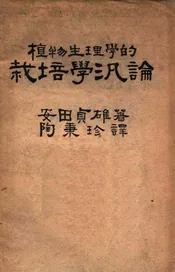 植物生理學的
栽培學汎論
安田貞雄著
陶秉珍譯